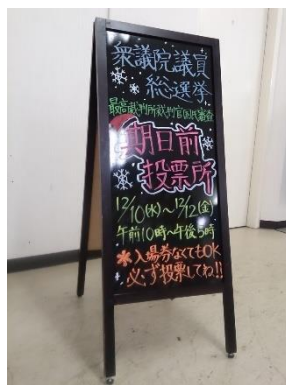 衆議院議員
総選挙
最高裁判所裁判官国民審査
期日前
投票所
12/10(水)～12/12(金)
午前10時～午後5時
*入場券なくてもOK
必ず投票してね!!